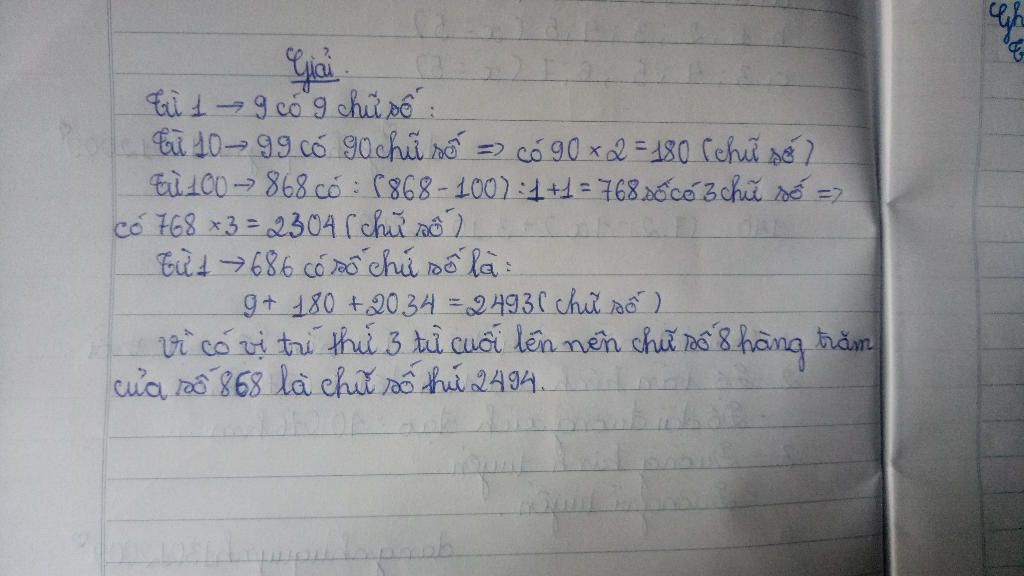 Giải.
Từ 1 → 9 có 9 chữ số :
Từ 10 → 99 có 90 chữ số => có 90 × 2 = 180 (chữ số)
Từ 100 → 868 có : (868 - 100) : 1 + 1 = 768 số có 3 chữ số =>
có 768 × 3 = 2304 (chữ số)
Từ 1 → 686 có số chữ số là :
9 + 180 + 2034 = 2493 (chữ số)
Vì có vị trí thứ 3 từ cuối lên nên chữ số 8 hàng trăm
của số 868 là chữ số thứ 2494.